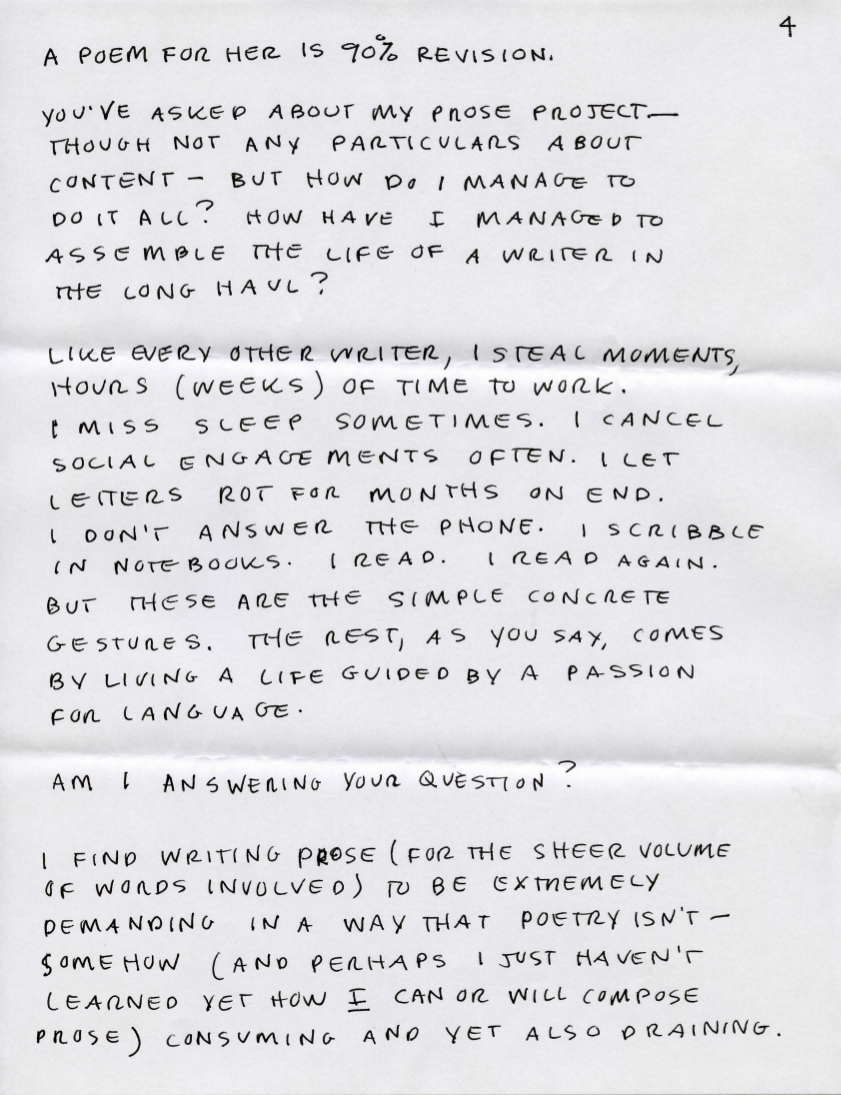 4
A POEM FOR HER IS 90% REVISION.
YOU'VE ASKED ABOUT MY PROSE PROJECT—
THOUGH NOT ANY PARTICULARS ABOUT
CONTENT – BUT HOW DO I MANAGE TO
DO IT ALL? HOW HAVE I MANAGED TO
ASSEMBLE THE LIFE OF A WRITER IN
THE LONG HAUL?
LIKE EVERY OTHER WRITER, I STEAL MOMENTS,
HOURS (WEEKS) OF TIME TO WORK.
I MISS SLEEP SOMETIMES. I CANCEL
SOCIAL ENGAGEMENTS OFTEN. I LET
LETTERS ROT FOR MONTHS ON END.
I DON'T ANSWER THE PHONE. I SCRIBBLE
IN NOTEBOOKS. I READ. I READ AGAIN.
BUT THESE ARE THE SIMPLE CONCRETE
GESTURES. THE REST, AS YOU SAY, COMES
BY LIVING A LIFE GUIDED BY A PASSION
FOR LANGUAGE.
AM I ANSWERING YOUR QUESTION?
I FIND WRITING PROSE (FOR THE SHEER VOLUME
OF WORDS INVOLVED) TO BE EXTREMELY
DEMANDING IN A WAY THAT POETRY ISN'T –
SOMEHOW (AND PERHAPS I JUST HAVEN'T
LEARNED YET HOW I CAN OR WILL COMPOSE
PROSE) CONSUMING AND YET ALSO DRAINING.